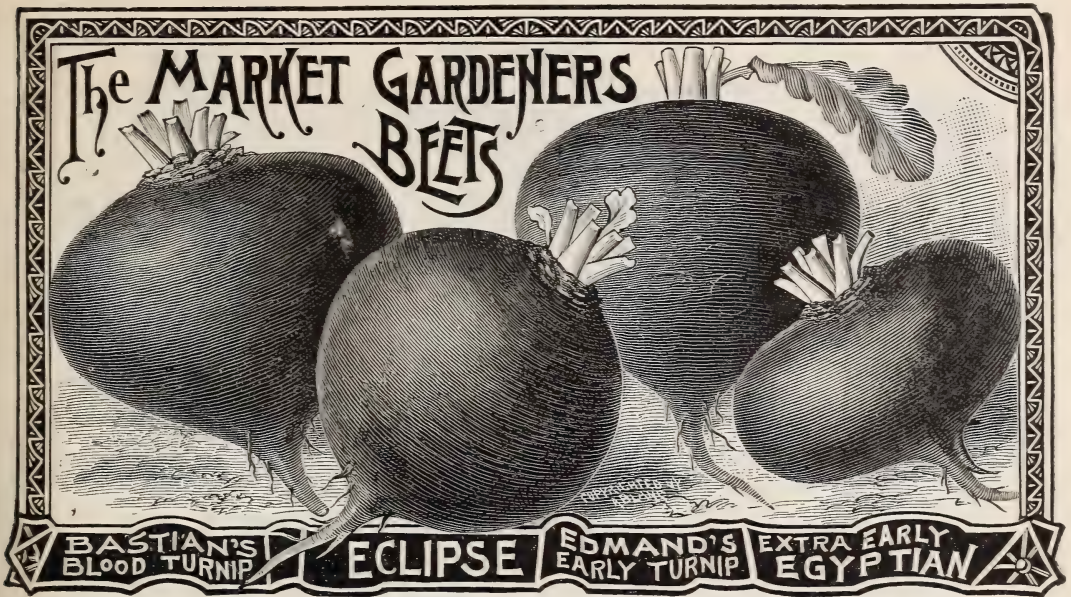 The MARKET GARDENERS
BEETS
COPYRIGHTED BY
BASTIAN'S
BLOOD TURNIP
ECLIPSE
EDMAND'S
EARLY TURNIP
EXTRA EARLY
EGYPTIAN